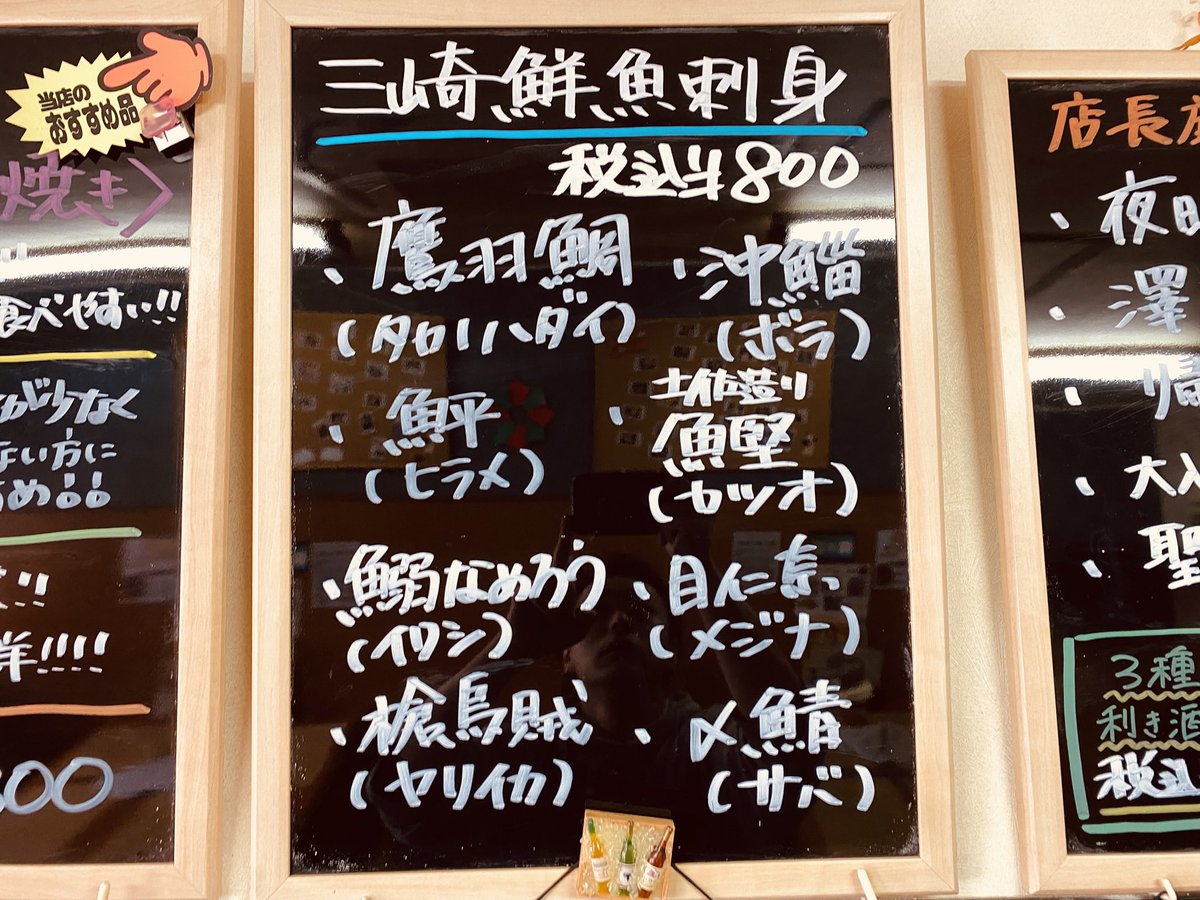 当店の
おすすめ品
焼き〉
食べやすい!!
なく
ない方に
!!
!!!!
00
三崎鮮魚刺身
税込¥800
・鷹羽鯛
(タカノハダイ)
・鮃
(ヒラメ)
・鰯なめろう
(イワシ)
・槍烏賊
(ヤリイカ)
・沖鯔
(ボラ)
・土佐造り
鰹
(カツオ)
・目仁奈
(メジナ)
・〆鯖
(サバ)
店長
・夜
・澤
・大
・聖
3種
利き酒
税込